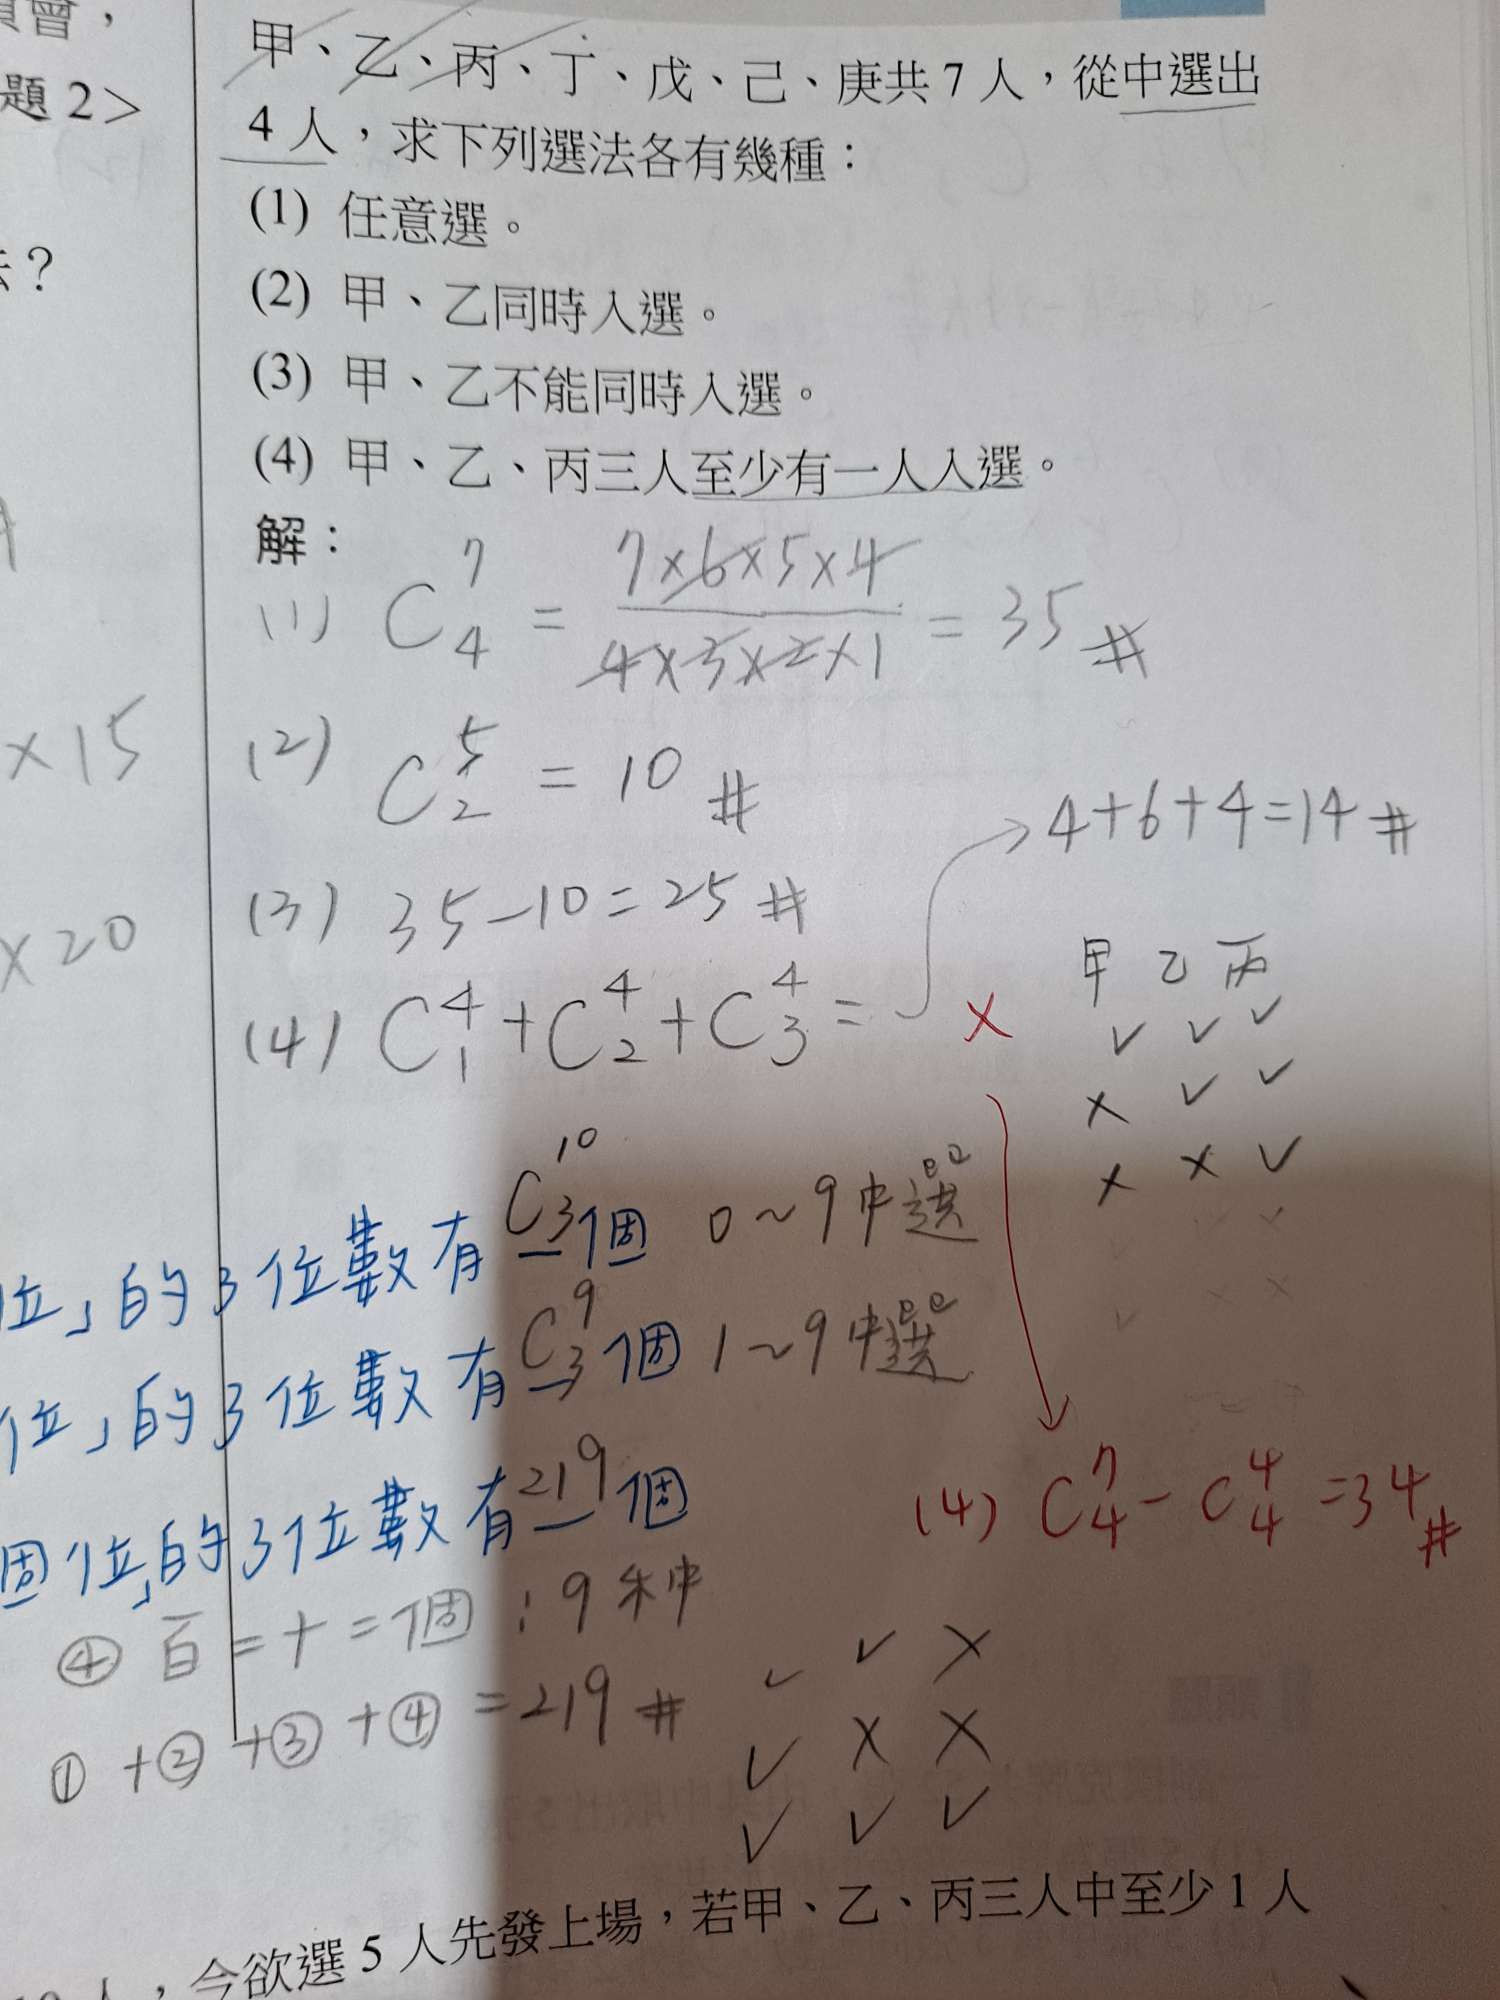 會，
題 2＞
甲、乙、丙、丁、戊、己、庚共 7 人，從中選出
4 人，求下列選法各有幾種：
(1) 任意選。
？
(2) 甲、乙同時入選。
(3) 甲、乙不能同時入選。
(4) 甲、乙、丙三人至少有一人入選。
解：
(1) C⁷₄ = 7×6×5×4 / 4×3×2×1 = 35 #
×15
(2) C⁵₂ = 10 #
4+6+4=14 #
(3) 35-10=25 #
×20
甲 乙 丙
(4) C⁴₁+C⁴₂+C⁴₃= ×
✓ ✓ ✓
× ✓ ✓
× × ✓
位」的3位數有C¹⁰₃個 0~9中選
位」的3位數有C⁹₃個 1~9中選
(4) C⁷₄-C⁴₄=34 #
個位」的3位數有219個
④ 百=十=個:9种
✓ ✓ ×
①+②+③+④=219 #
✓ × ×
✓ ✓ ✓
人，今欲選 5 人先發上場，若甲、乙、丙三人中至少 1 人